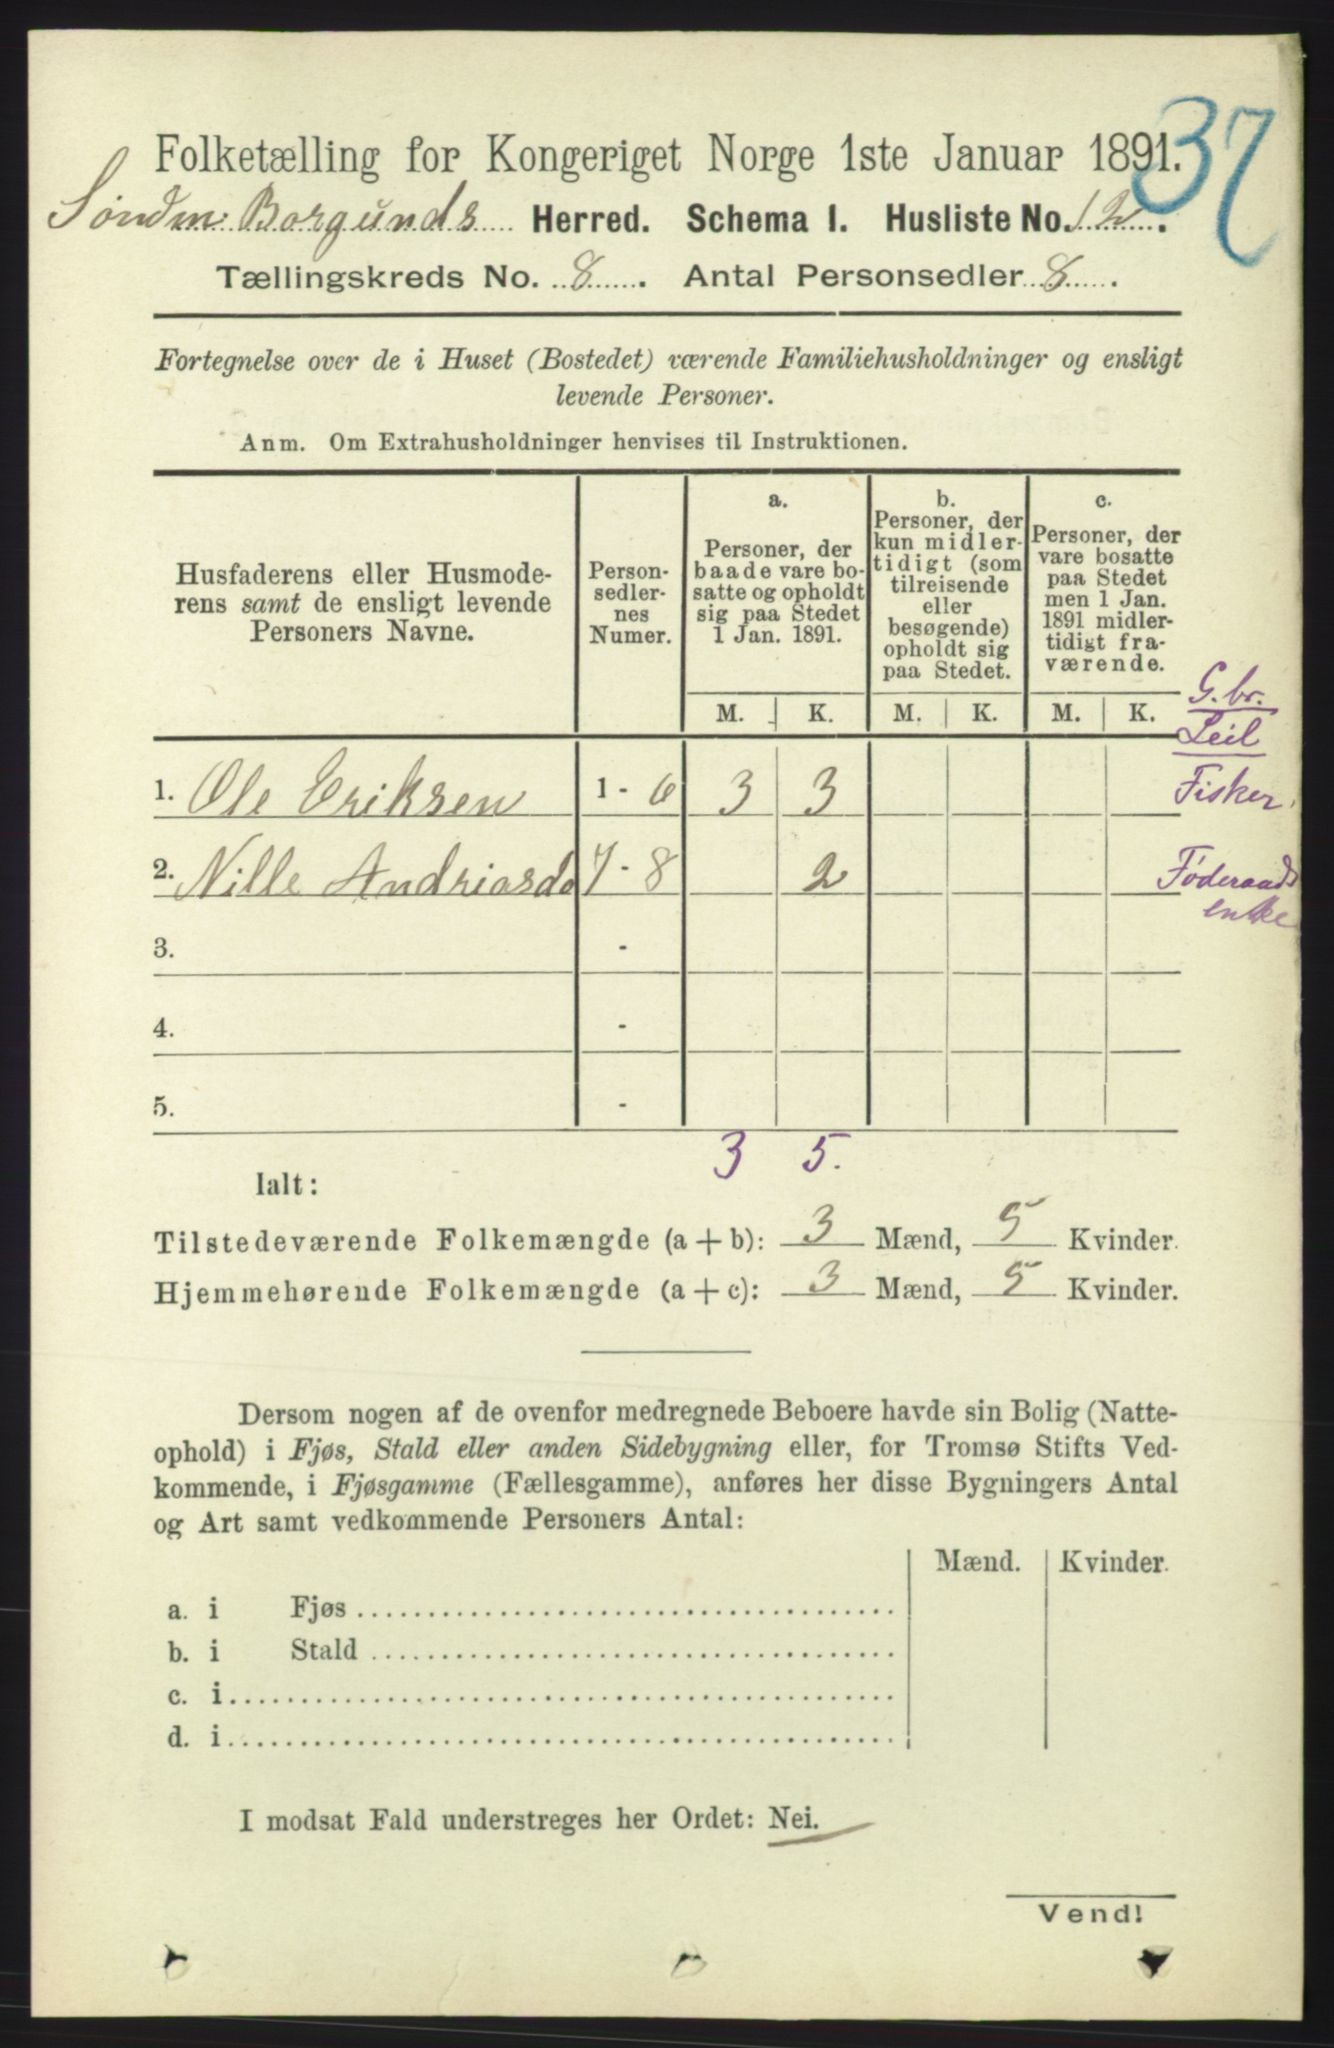 37
Folketælling for Kongeriget Norge 1ste Januar 1891.
Søndm. Borgunds Herred. Schema I. Husliste No. 12.
Tællingskreds No. 8. Antal Personsedler 8.
Fortegnelse over de i Huset (Bostedet) værende Familiehusholdninger og ensligt
levende Personer.
Anm. Om Extrahusholdninger henvises til Instruktionen.
Husfaderens eller Husmode-
rens samt de ensligt levende
Personers Navne.
Person-
sedler-
nes
Numer.
a.
Personer, der
baade vare bo-
satte og opholdt
sig paa Stedet
1 Jan. 1891.
b.
Personer, der
kun midler-
tidigt (som
tilreisende
eller
besøgende)
opholdt sig
paa Stedet.
c.
Personer, der
vare bosatte
paa Stedet
men 1 Jan.
1891 midler-
tidigt fra-
værende.
M. K. M. K. M. K.
G.br.
Leil
1. Ole Eriksen 1 - 6 3 3 Fisker.
2. Nille Andriasd 7 - 8 2 Føderaads
enke
3. -
4. -
5. -
3 5.
Ialt:
Tilstedeværende Folkemængde (a + b): 3 Mænd, 5 Kvinder.
Hjemmehørende Folkemængde (a + c): 3 Mænd, 5 Kvinder.
Dersom nogen af de ovenfor medregnede Beboere havde sin Bolig (Natte-
ophold) i Fjøs, Stald eller anden Sidebygning eller, for Tromsø Stifts Ved-
kommende, i Fjøsgamme (Fællesgamme), anføres her disse Bygningers Antal
og Art samt vedkommende Personers Antal:
Mænd. Kvinder.
a. i Fjøs
b. i Stald
c. i
d. i
I modsat Fald understreges her Ordet: Nei.
Vend!